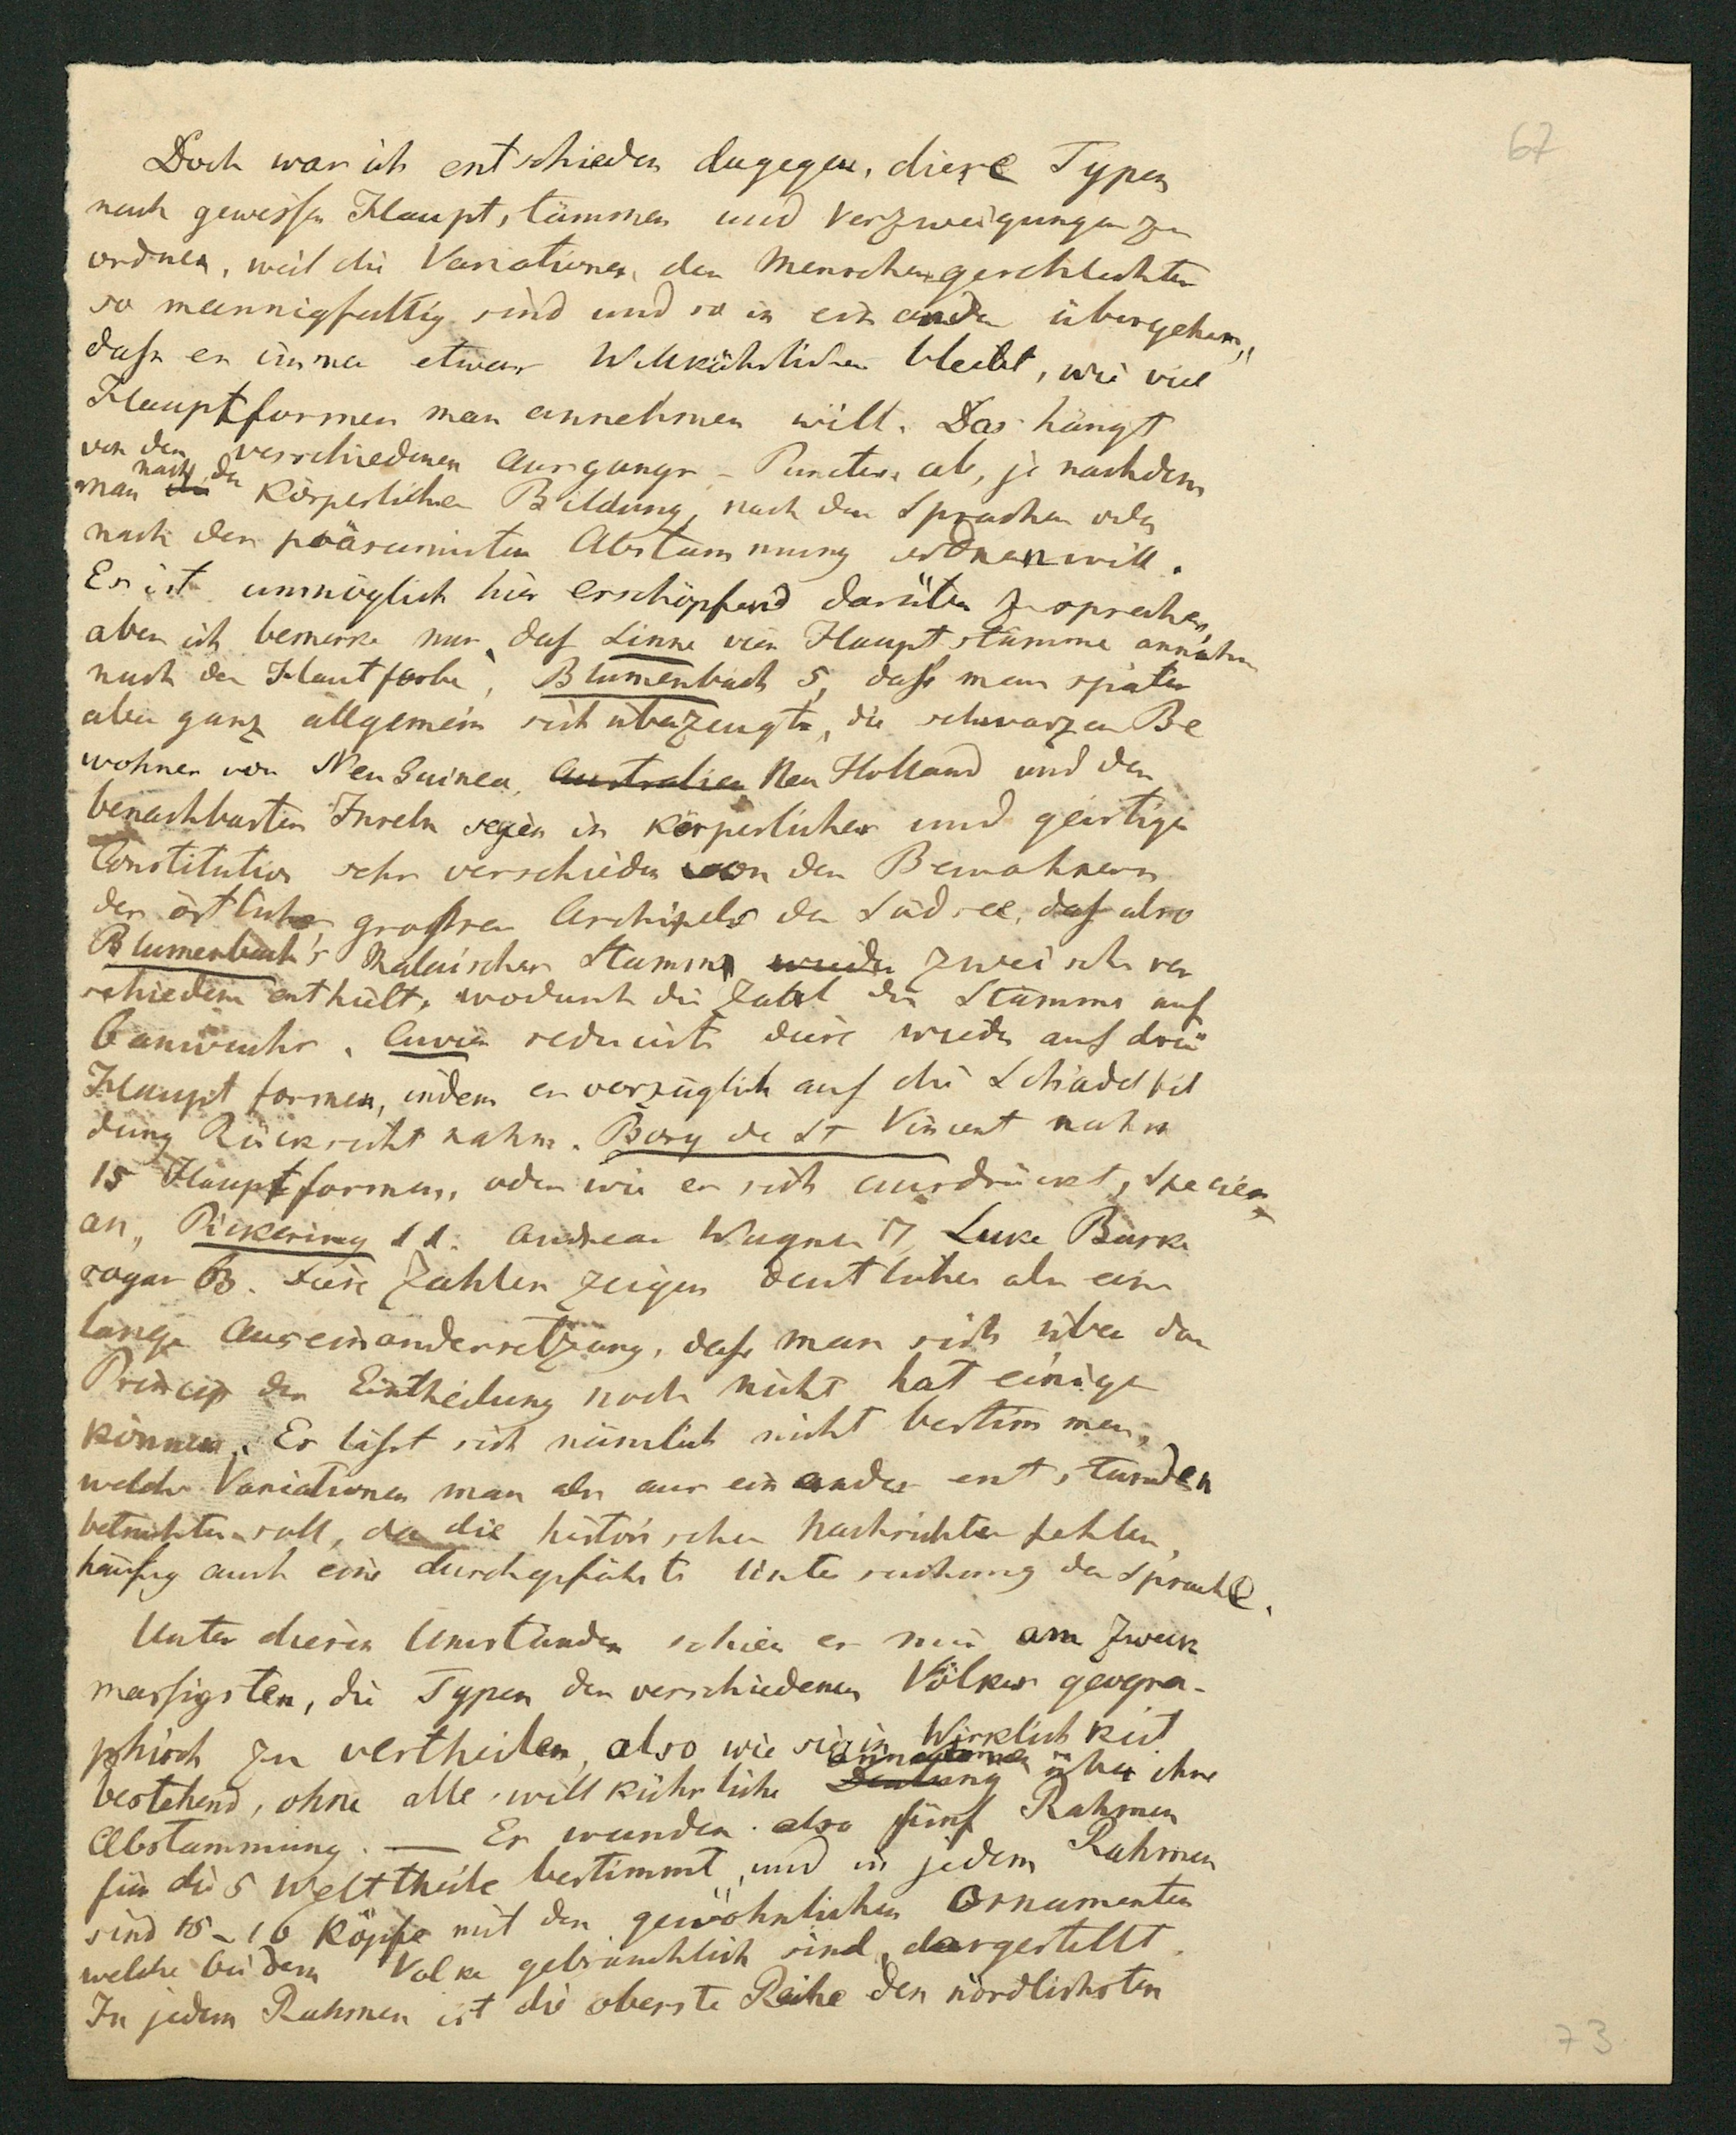 67
Doch war ich entschieden dagegen, diese Typen
nach gewissen Hauptstämmen und Verzweigungen zu
ordnen, weil die Variationen des Menschengeschlechtes
so mannigfaltig sind und so in einander übergehen,
daß es immer etwas Willkührliches bleibt, wie viel
Hauptformen man annehmen will. Das hängt
von den verschiedenen Ausgangs-Puncten ab, je nachdem
man die nach der körperlichen Bildung, nach den Sprachen oder
nach der präsumirten Abstammung ordnen will.
Es ist unmöglich hier erschöpfend darüber zu sprechen,
aber ich bemerke nur, daß Linne vier Hauptstämme annahm
nach der Hautfarbe, Blumenbach 5, daß man später
aber ganz allgemein sich überzeugte, die schwarzen Be
wohner von Neu Guinea, Australien Neu Holland und den
benachbarten Inseln seyen in körperlicher und geistiger
Constitution sehr verschieden von den Bewohnern
des östlichen grossen Archipels der Südsee, daß also
Blumenbach's Malaischer Stamm wieder zwei sehr ver
schiedene enthält, wodurch die Zahl der Stämme auf
6 anwuchs. Cuvier reducirte diese wieder auf drei
Hauptformen, indem er vorzüglich auf die Schädelbil
dung Rücksicht nahm. Bory de St Vincent nahm
15 Hauptformen, oder wie er sich ausdrückt, Species
an, Pickering 11. Andreas Wagner 17, Luke Burke
sogar 63. Diese Zahlen zeigen deutlicher als eine
lange Auseinandersetzung, daß man sich über das
Princip der Eintheilung noch nicht hat einigen
können. Es läßt sich nämlich nicht bestimmen,
welche Variationen man als aus einander entstanden
betrachten soll, da die historischen Nachrichten fehlen,
häufig auch eine durchgeführte Untersuchung der Sprache.
Unter diesen Umständen schien es mir am zweck
mässigsten, die Typen der verschiedenen Völker geogra-
phisch zu vertheilen, also wie sie in Wirklichkeit
bestehend, ohne alle willkührliche Deutung Annahmen über ihre
Abstammung. — Es wurden also fünf Rahmen
für die 5 Welttheile bestimmt, und in jedem Rahmen
sind 15-16 Köpfe mit den gewöhnlichen Ornamenten
welche bei dem Volke gebräuchlich sind, dargestellt.
In jedem Rahmen ist die oberste Reihe den nördlichsten
73